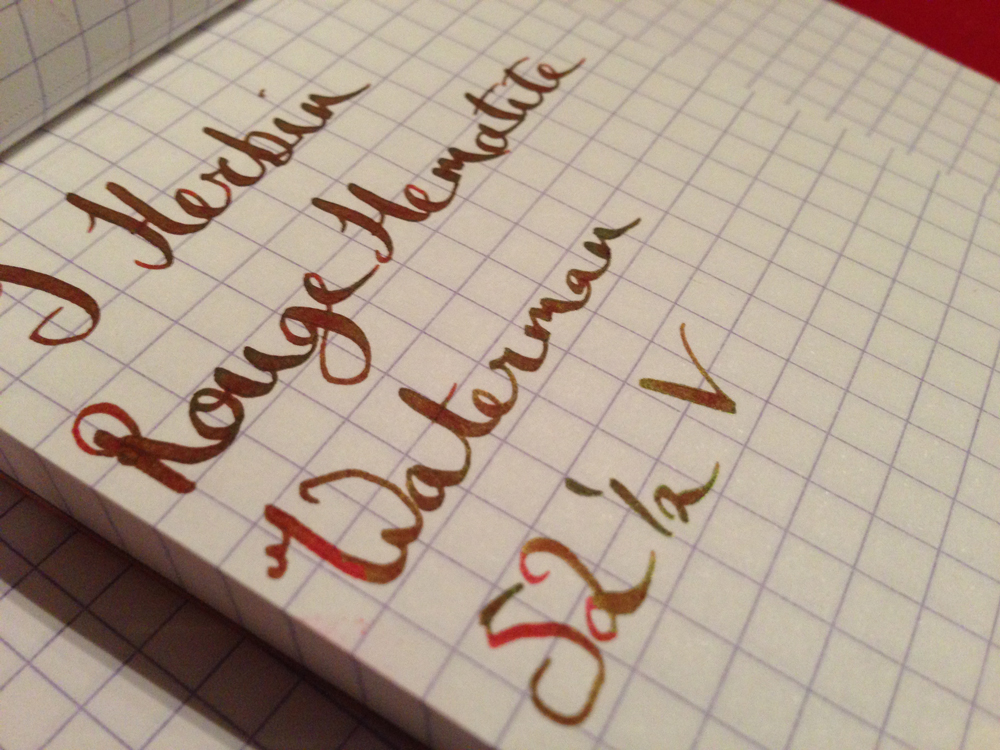 J Herbin
Rouge Hematite
Waterman
52 1/2 V